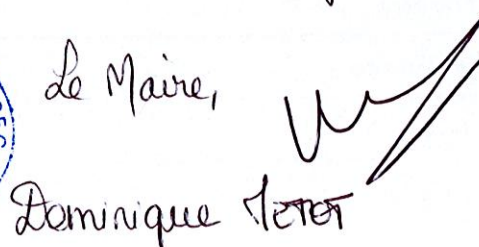 Le Maire,
Dominique METOT